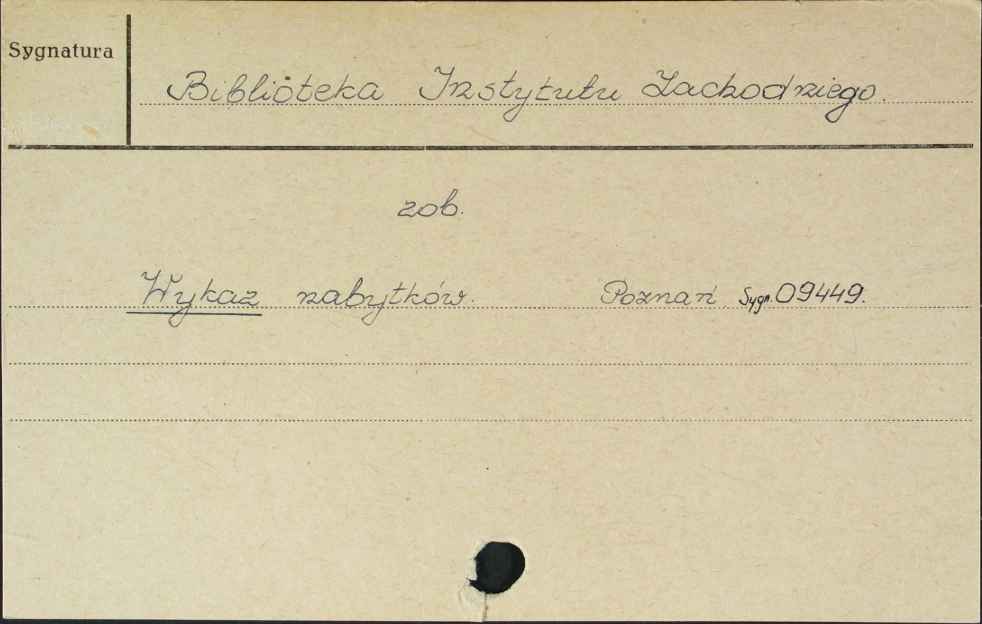 Sygnatura
Biblioteka Instytutu Zachodniego.
zob.
Wykaz nabytków. Poznań Sygn. 09449.